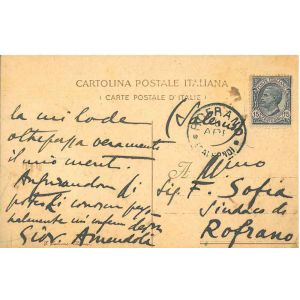 CARTOLINA POSTALE ITALIANA
(CARTE POSTALE D'ITALIE)
la mi lode
oltrepassa veramente
il mio merit.
Augurandomi di
poterti conoscer perso
nalmente mi confermo
Giov. Amendola
(Salerno)
A Illmo
Sig. F. Sofia
Sindaco di
Rofrano
15 15